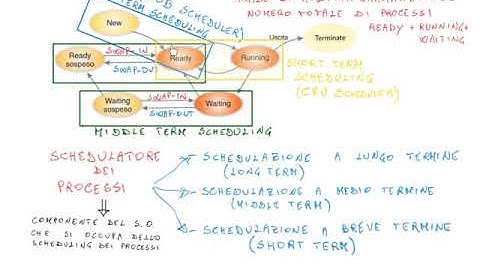 (JOB SCHEDULER)
TERM SCHEDULING
NUMERO TOTALE DI PROCESSI
READY + RUNNING +
WAITING
New
Uscita
Terminate
Ready
sospeso
SWAP-IN
SWAP-OUT
Ready
Running
SHORT TERM
SCHEDULING
(CPU SCHEDULER)
Waiting
sospeso
SWAP-IN
SWAP-OUT
Waiting
MIDDLE TERM SCHEDULING
SCHEDULATORE
DEI
PROCESSI
SCHEDULAZIONE A LUNGO TERMINE
(LONG TERM)
SCHEDULAZIONE A MEDIO TERMINE
(MIDDLE TERM)
SCHEDULAZIONE A BREVE TERMINE
(SHORT TERM)
COMPONENTE DEL S.O.
CHE SI OCCUPA DELLO
SCHEDULING DEI PROCESSI